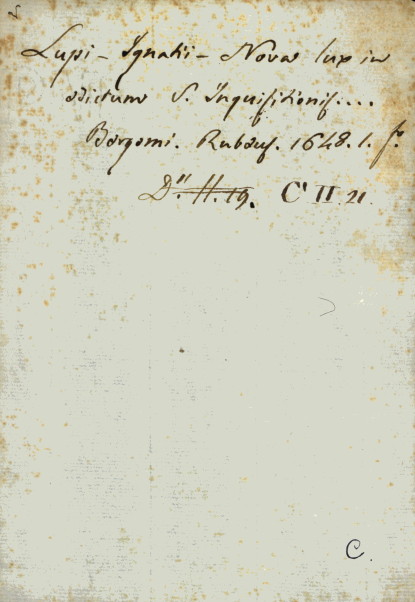 Lupi - Ignatii - Nova lux in
edictum S. Inquisitionis....
Bergomi. Rubeus. 1648. 1. f.º
D". H. 19. C' II 21.
C.